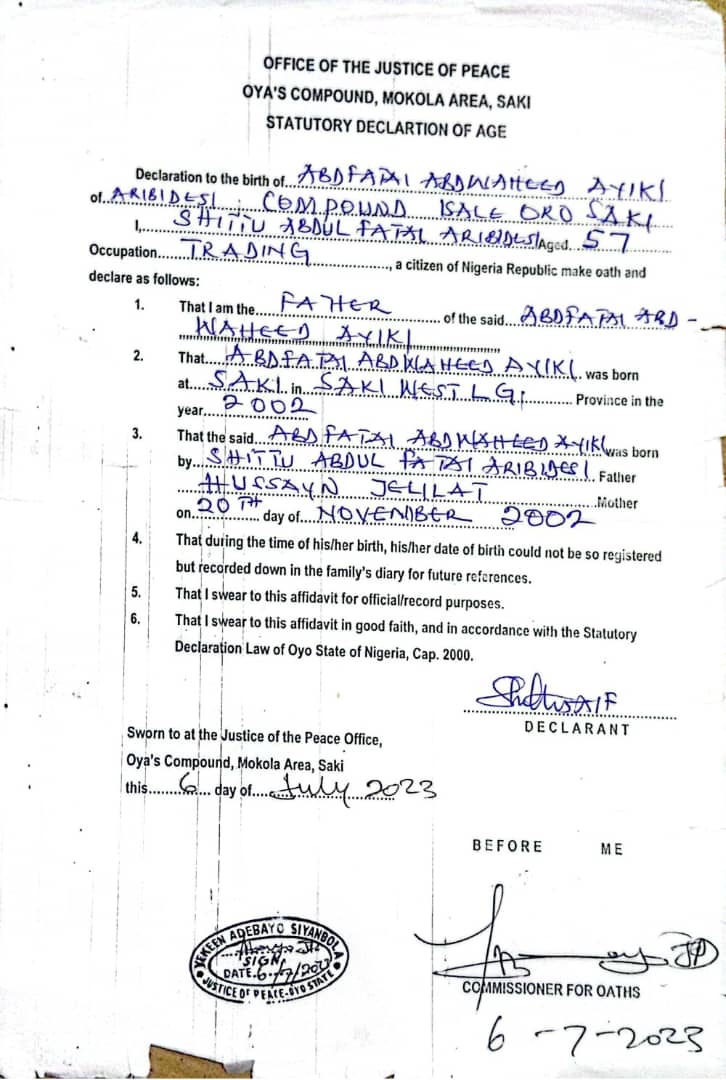 OFFICE OF THE JUSTICE OF PEACE
OYA'S COMPOUND, MOKOLA AREA, SAKI
STATUTORY DECLARTION OF AGE
Declaration to the birth of...ABDFATAI ABDWAHEED AYIKI
of..ARIBIDESI COMPOUND ISALE ORO SAKI
I,......SHITTU ABDUL FATAI ARIBIDESI Aged. 57
Occupation......TRADING......................, a citizen of Nigeria Republic make oath and
declare as follows:
1. That I am the....FATHER....................... of the said...ABDFATAI ABD-
WAHEED AYIKI
2. That....ABDFATAI ABDWAHEED AYIKI.. was born
at....SAKI.. in...SAKI WEST L.G,............ Province in the
year...2002
3. That the said...ABDFATAI ABDWAHEED AYIKI was born
by...SHITTU ABDUL FATAI ARIBIDESI. Father
HUSSAYN JELILAT.........................Mother
on..20TH......... day of...NOVEMBER 2002
4. That during the time of his/her birth, his/her date of birth could not be so registered
but recorded down in the family's diary for future references.
5. That I swear to this affidavit for official/record purposes.
6. That I swear to this affidavit in good faith, and in accordance with the Statutory
Declaration Law of Oyo State of Nigeria, Cap. 2000.
DECLARANT
Sworn to at the Justice of the Peace Office,
Oya's Compound, Mokola Area, Saki
this.........6... day of....July 2023
BEFORE ME
YEKEEN ADEBAYO SIYANBOLA
SIGN
DATE.6-/7/2023
JUSTICE OF PEACE-OYO STATE
JP
COMMISSIONER FOR OATHS
6-7-2023